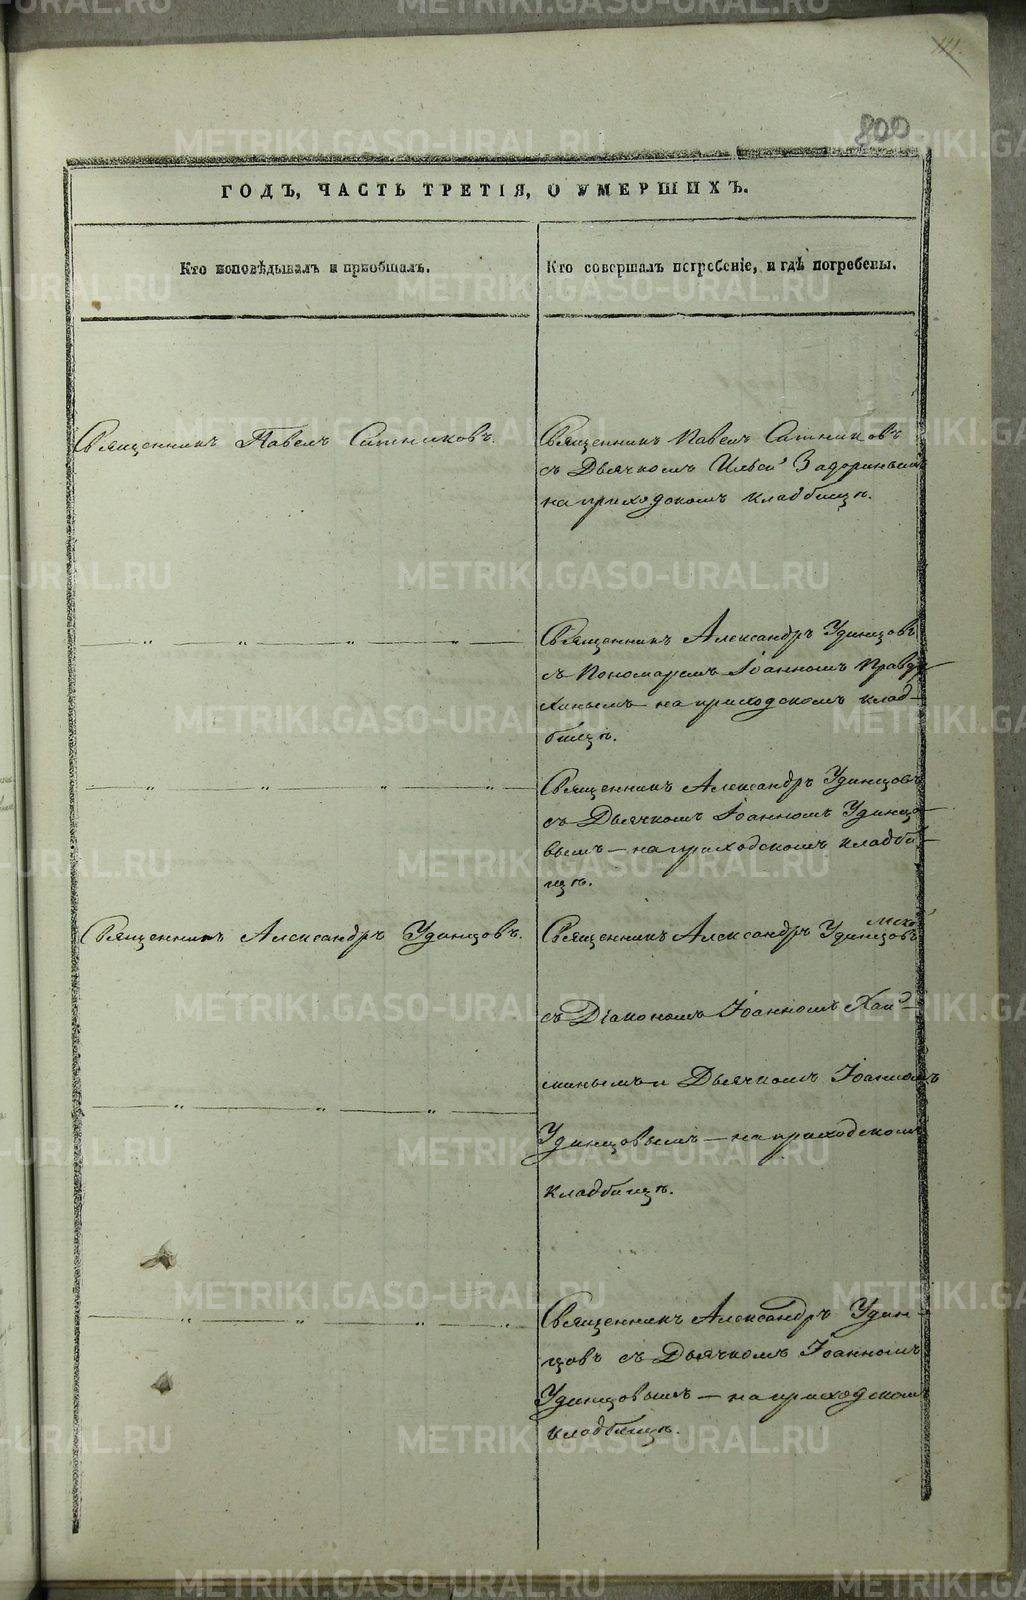 111.
800
ГОДЪ, ЧАСТЬ ТРЕТІЯ, О УМЕРШИХЪ.
Кто исповѣдывалъ и пріобщалъ.
Кто совершалъ погребеніе, и гдѣ погребены.
Священникъ Павелъ Ситниковъ.
Священникъ Павелъ Ситниковъ
съ Дьячкомъ Ильей Задоринымъ
на приходскомъ кладбищѣ.
— „ — „ — „ — „ —
Священникъ Александръ Удинцовъ
съ Пономаремъ Іоанномъ Правду-
хинымъ — на приходскомъ клад-
бищѣ.
— „ — „ — „ — „ —
Священникъ Александръ Удинцовъ
съ Дьячкомъ Іоанномъ Удинцо-
вымъ — на приходскомъ кладби-
щѣ.
Священникъ Александръ Удинцовъ.
Священникъ Александръ Удинцовъ
съ Діакономъ Іоанномъ Хай-
минымъ и Дьячкомъ Іоанномъ
— „ — „ — „ —
Удинцовымъ — на приходскомъ
кладбищѣ.
— „ — „ — „ — „
Священникъ Александръ Удин-
цовъ съ Дьячкомъ Іоанномъ
Удинцовымъ — на приходскомъ
кладбищѣ.
METRIKI.GASO-URAL.RU